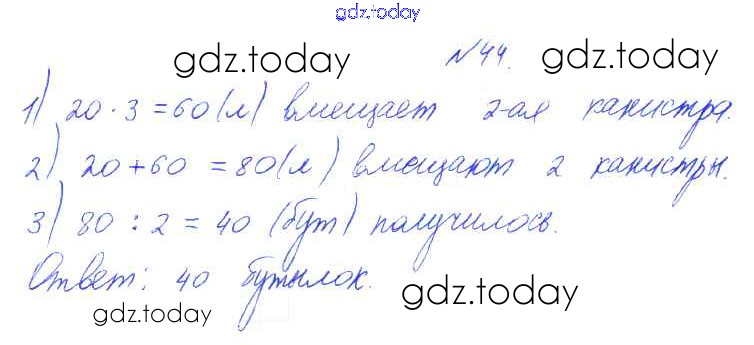 gdz.today
gdz.today №44. gdz.today
1) 20 · 3 = 60 (л) вмещает 2-ая канистра.
2) 20 + 60 = 80 (л) вмещают 2 канистры.
3) 80 : 2 = 40 (бут) получилось.
Ответ: 40 бутылок.
gdz.today gdz.today